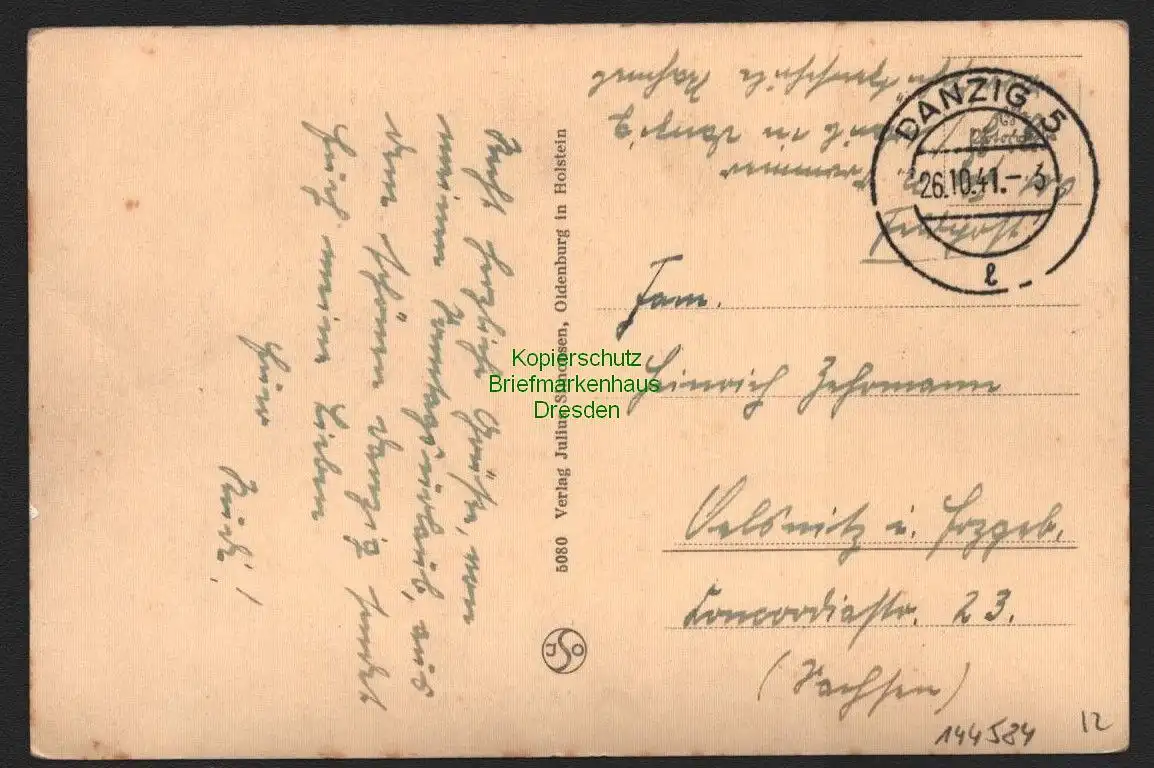 Recht herzliche Grüße, von
meinem Sonntagsurlaub, aus
dem schönen Danzig sendet
Euch meine Lieben
Euer
Rudi!
5080 Verlag Julius Simonsen, Oldenburg in Holstein
JSO
DANZIG 5
26.10.41.-3
l
Feldpost
in Danzig
Fam.
Heinrich Zehrmann
Oelsnitz i. Erzgeb.
Concordiastr. 23.
(Sachsen)
144584
12
Kopierschutz
Briefmarkenhaus
Dresden